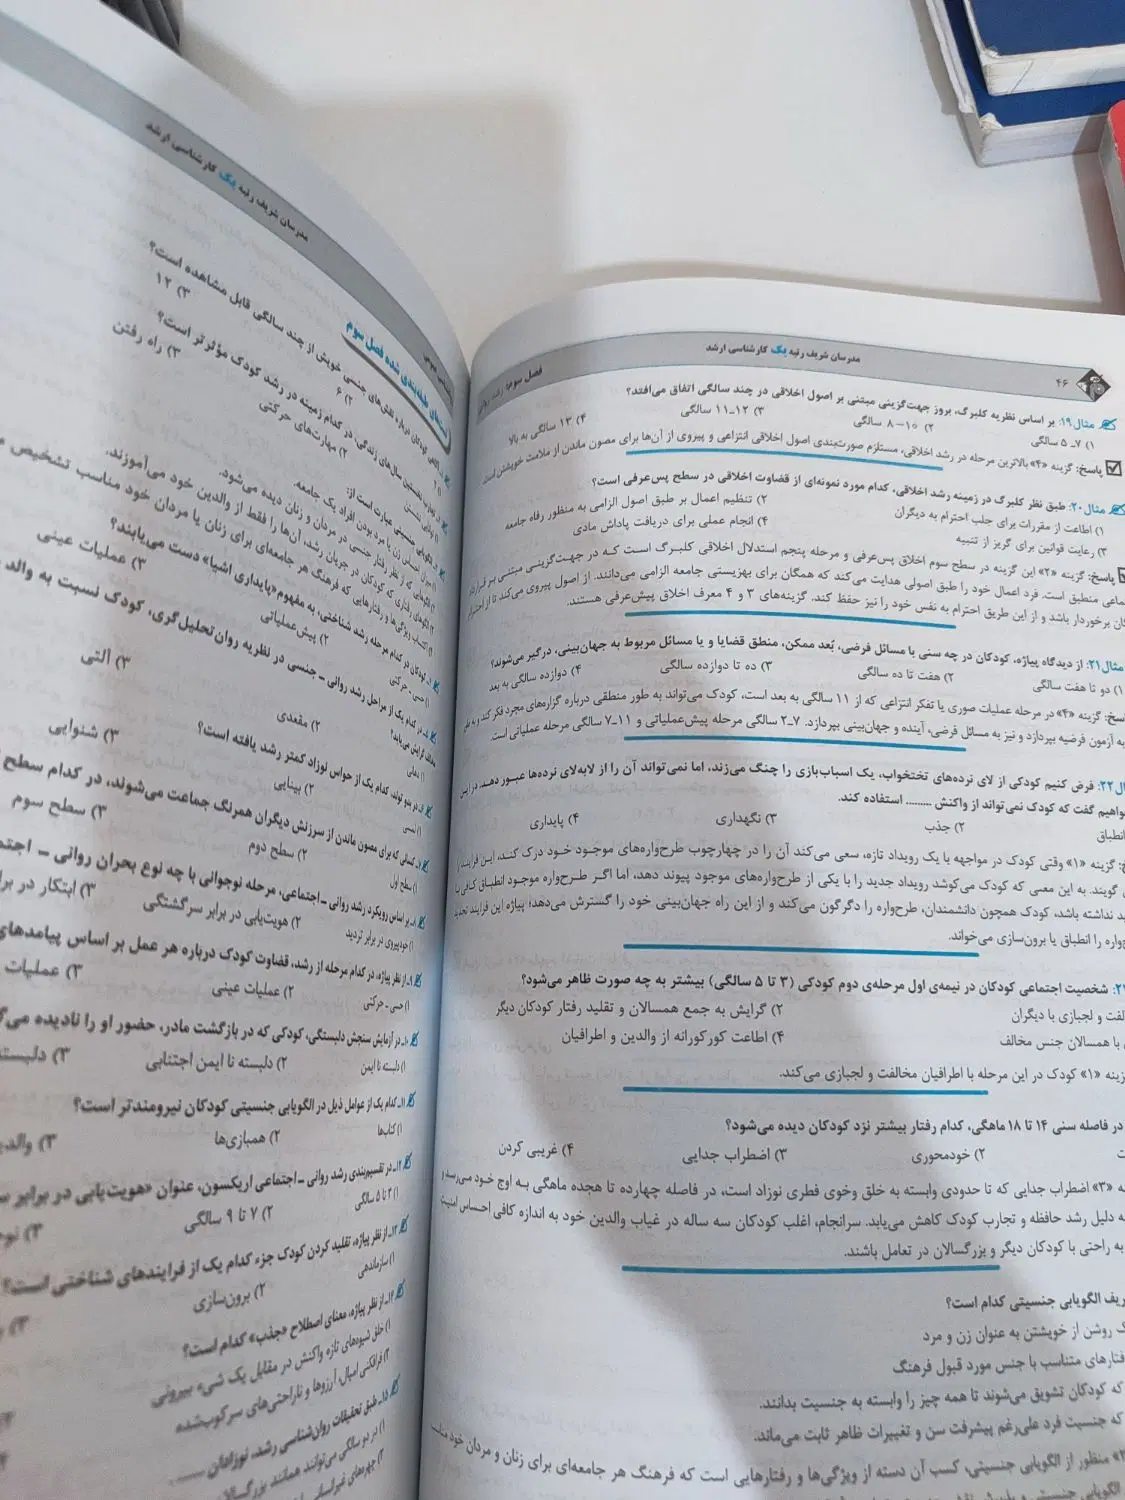 ۴۶
مدرسان شریف رتبه یک کارشناسی ارشد
فصل سوم: رشد
مثال ۱۹: بر اساس نظریه کلبرگ، بروز جهت‌گزینی مبتنی بر اصول اخلاقی در چند سالگی اتفاق می‌افتد؟
۱) ۷ـ ۵ سالگی ۲) ۱۰ – ۸ سالگی ۳) ۱۲ـ۱۱ سالگی ۴) ۱۳ سالگی به بالا
پاسخ: گزینه «۴» بالاترین مرحله در رشد اخلاقی، مستلزم صورت‌بندی اصول اخلاقی انتزاعی و پیروی از آن‌ها برای مصون ماندن از ملامت خویشتن است.
مثال ۲۰: طبق نظر کلبرگ در زمینه رشد اخلاقی، کدام مورد نمونه‌ای از قضاوت اخلاقی در سطح پس‌عرفی است؟
۱) اطاعت از مقررات برای جلب احترام به دیگران ۲) تنظیم اعمال بر طبق اصول الزامی به منظور رفاه جامعه
۳) رعایت قوانین برای گریز از تنبیه ۴) انجام عملی برای دریافت پاداش مادی
پاسخ: گزینه «۲» این گزینه در سطح سوم اخلاق پس‌عرفی و مرحله پنجم استدلال اخلاقی کلبرگ است که در جهت‌گزینی مبتنی بر قرارداد
ماعی منطبق است. فرد اعمال خود را طبق اصولی هدایت می‌کند که همگان برای بهزیستی جامعه الزامی می‌دانند. از اصول پیروی می‌کند تا از احترام
گان برخوردار باشد و از این طریق احترام به نفس خود را نیز حفظ کند. گزینه‌های ۳ و ۴ معرف اخلاق پیش‌عرفی هستند.
مثال ۲۱: از دیدگاه پیاژه، کودکان در چه سنی با مسائل فرضی، بُعد ممکن، منطق قضایا و یا مسائل مربوط به جهان‌بینی، درگیر می‌شوند؟
۱) دو تا هفت سالگی ۲) هفت تا ده سالگی ۳) ده تا دوازده سالگی ۴) دوازده سالگی به بعد
سخ: گزینه «۴» در مرحله عملیات صوری یا تفکر انتزاعی که از ۱۱ سالگی به بعد است، کودک می‌تواند به طور منطقی درباره گزاره‌های مجرد فکر کند و به طور
به آزمون فرضیه بپردازد و نیز به مسائل فرضی، آینده و جهان‌بینی بپردازد. ۷ـ۲ سالگی مرحله پیش‌عملیاتی و ۱۱ـ۷ سالگی مرحله عملیاتی است.
ال ۲۲: فرض کنیم کودکی از لای نرده‌های تختخواب، یک اسباب‌بازی را چنگ می‌زند، اما نمی‌تواند آن را از لابه‌لای نرده‌ها عبور دهد. در این
خواهیم گفت که کودک نمی‌تواند از واکنش ......... استفاده کند.
انطباق ۲) جذب ۳) نگهداری ۴) پایداری
خ: گزینه «۱» وقتی کودک در مواجهه با یک رویداد تازه، سعی می‌کند آن را در چهارچوب طرح‌واره‌های موجود خود درک کند، این فرایند را
گویند. به این معنی که کودک می‌کوشد رویداد جدید را با یکی از طرح‌واره‌های موجود پیوند دهد، اما اگر طرح‌واره موجود انطباق کافی با
ید نداشته باشد، کودک همچون دانشمندان، طرح‌واره را دگرگون می‌کند و از این راه جهان‌بینی خود را گسترش می‌دهد؛ پیاژه این فرایند تجدید
واره را انطباق یا برون‌سازی می‌خواند.
شخصیت اجتماعی کودکان در نیمه‌ی اول مرحله‌ی دوم کودکی (۳ تا ۵ سالگی) بیشتر به چه صورت ظاهر می‌شود؟
لفت و لجبازی با دیگران ۲) گرایش به جمع همسالان و تقلید رفتار کودکان دیگر
با همسالان جنس مخالف ۴) اطاعت کورکورانه از والدین و اطرافیان
زینه «۱» کودک در این مرحله با اطرافیان مخالفت و لجبازی می‌کند.
در فاصله سنی ۱۴ تا ۱۸ ماهگی، کدام رفتار بیشتر نزد کودکان دیده می‌شود؟
۲) خودمحوری ۳) اضطراب جدایی ۴) غریبی کردن
نه «۳» اضطراب جدایی که تا حدودی وابسته به خلق وخوی فطری نوزاد است، در فاصله چهارده تا هجده ماهگی به اوج خود می‌رسد و
به دلیل رشد حافظه و تجارب کودک کاهش می‌یابد. سرانجام، اغلب کودکان سه ساله در غیاب والدین خود به اندازه کافی احساس امنیت
به راحتی با کودکان دیگر و بزرگسالان در تعامل باشند.
ریف الگویابی جنسیتی کدام است؟
ک روشن از خویشتن به عنوان زن و مرد
فتارهای متناسب با جنس مورد قبول فرهنگ
که کودکان تشویق می‌شوند تا همه چیز را وابسته به جنسیت بدانند.
که جنسیت فرد علی‌رغم پیشرفت سن و تغییرات ظاهر ثابت می‌ماند.
منظور از الگویابی جنسیتی، کسب آن دسته از ویژگی‌ها و رفتارهایی است که فرهنگ هر جامعه‌ای برای زنان و مردان خود
مدرسان شریف رتبه یک کارشناسی ارشد
تست‌های طبقه‌بندی شده فصل سوم
۱ـ آگاهی کودکان درباره نقش‌های جنسی خویش از چند سالگی قابل مشاهده است؟
۲) ۶ ۳) ۱۲
۲ـ تجارب نخستین سال‌های زندگی، در کدام زمینه در رشد کودک مؤثرتر است؟
۲) مهارت‌های حرکتی ۳) راه رفتن
۳ـ الگویابی جنسیتی عبارت است از:
۱) میزان احساس زن یا مرد بودن افراد یک جامعه.
۲) الگوهایی که از نظر رفتار جنسی در مردان و زنان دیده می‌شود.
۳) الگوهای رفتاری که کودکان در جریان رشد، آن‌ها را فقط از والدین خود می‌آموزند.
۴) اکتساب ویژگی‌ها و رفتارهایی که فرهنگ هر جامعه‌ای برای زنان یا مردان خود مناسب تشخیص
۴ـ کودکان در کدام مرحله رشد شناختی، به مفهوم «پایداری اشیا» دست می‌یابند؟
۱) حسی ـ حرکتی ۲) پیش‌عملیاتی ۳) عملیات عینی
۵ـ در کدام یک از مراحل رشد روانی ـ جنسی در نظریه روان‌تحلیل‌گری، کودک نسبت به والد
مخالف گرایش می‌یابد؟
۱) دهانی ۲) مقعدی ۳) آلتی
۶ـ در بدو تولد، کدام یک از حواس نوزاد کمتر رشد یافته است؟
۱) لمسی ۲) بینایی ۳) شنوایی
۷ـ کسانی که برای مصون ماندن از سرزنش دیگران همرنگ جماعت می‌شوند، در کدام سطح
۱) سطح اول ۲) سطح دوم ۳) سطح سوم
۸ـ بر اساس رویکرد رشد روانی ـ اجتماعی، مرحله نوجوانی با چه نوع بحران روانی ـ
۱) خودپیروی در برابر تردید ۲) هویت‌یابی در برابر سرگشتگی ۳) ابتکار در
۹ـ از نظر پیاژه، در کدام مرحله از رشد، قضاوت کودک درباره هر عمل بر اساس پیامدهای
۱) حسی ـ حرکتی ۲) عملیات عینی ۳) عملیات
۱۰ـ در آزمایش سنجش دلبستگی، کودکی که در بازگشت مادر، حضور او را نادیده
۱) دلبسته نا ایمن ۲) دلبسته نا ایمن اجتنابی ۳) دلبسته
۱۱ـ کدام یک از عوامل ذیل در الگویابی جنسیتی کودکان نیرومندتر است؟
۱) کتاب‌ها ۲) همبازی‌ها
۱۲ـ در تقسیم‌بندی رشد روانی ـ اجتماعی اریکسون، عنوان «هویت‌یابی در برابر
۱) ۲ تا ۵ سالگی ۲) ۷ تا ۹ سالگی
۱۳ـ از نظر پیاژه، تقلید کردن کودک جزء کدام یک از فرایندهای شناختی است؟
۱) سازماندهی ۲) برون‌سازی
۱۴ـ از نظر پیاژه، معنای اصطلاح «جذب» کدام است؟
۱) خلق شیوه‌های تازه واکنش در مقابل یک شیء بیرونی
۲) فرافکنی امیال، آرزوها و ناراحتی‌های سرکوب‌شده
۱۵ـ طبق تحقیقات روان‌شناسی رشد، نوزادان
۱) در دو سالگی می‌توانند همانند